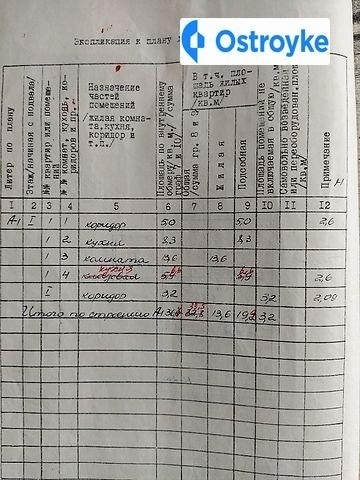 Ostroyke
Экспликация к плану
Литер по плану
Этаж/начиная с подвала/
№№ квартир или помещений
№ № комнат, кухонь, коридоров и пр.
Назначение частей помещений /жилая комната, кухня, коридор и т.п./
Площадь по внутреннему обмеру кв. м.
/сумма граф 7 и 10/
Общая /сумма гр. 8 и 9
В т.ч. площадь жилых квартир /кв.м/
Жилая
Подсобная
Площадь помещений не включаемая в общую/кв.м/
Самовольно возведенная или переоборудован.площ /кв.м/
Примечание
Н
1 2 3 4 5 6 7 8 9 10 11 12
А-1 I 1 1 коридор 5,0 5,0 2,6
1 2 кухня 3,3
1 3 комната 13,6 13,6
кухня 6,6 6,6
1 4 5,9 5,9 2,6
I коридор 3,2 3,2 2,09
Итого по строению А1 13,6 3,2